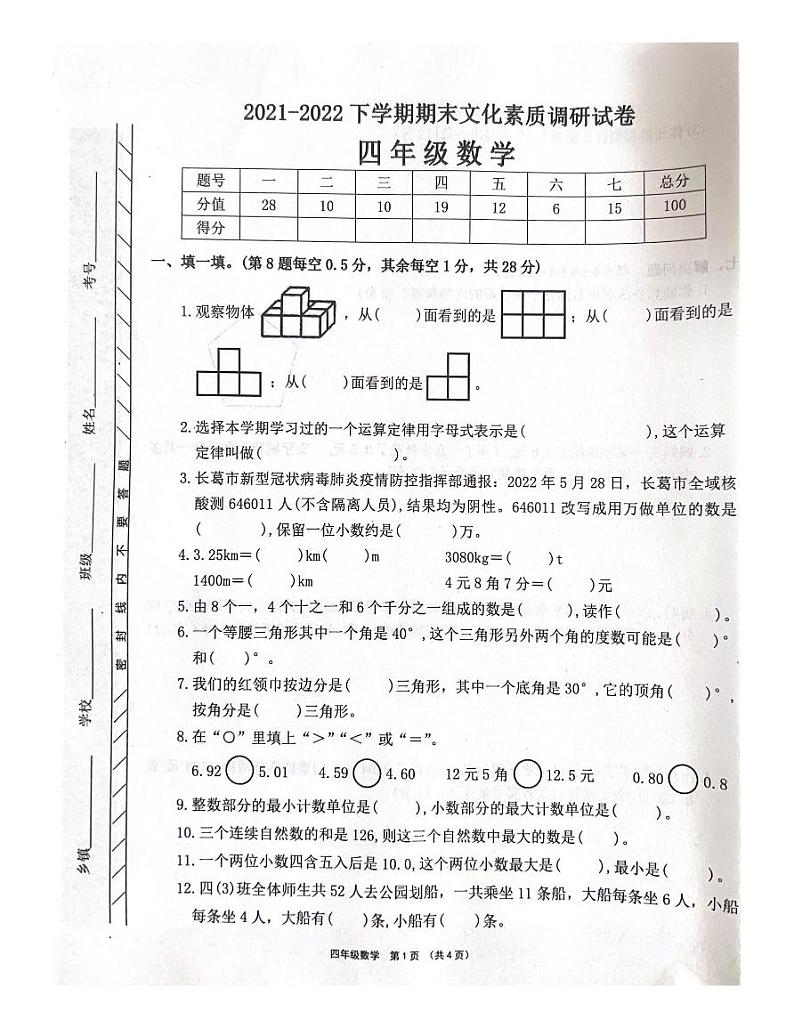 2021-2022下学期期末文化素质调研试卷
四年级数学
题号 一 二 三 四 五 六 七 总分
分值 28 10 10 19 12 6 15 100
得分
一、填一填。(第8题每空0.5分，其余每空1分，共28分)
1.观察物体 ，从( )面看到的是 ；从( )面看到的是
；从( )面看到的是 。
2.选择本学期学习过的一个运算定律用字母式表示是( ),这个运算
定律叫做( )。
3.长葛市新型冠状病毒肺炎疫情防控指挥部通报：2022年5月28日，长葛市全域核
酸测646011人(不含隔离人员),结果均为阴性。646011改写成用万做单位的数是
( ),保留一位小数约是( )万。
4.3.25km＝( )km( )m 3080kg＝( )t
1400m＝( )km 4元8角7分＝( )元
5.由8个一，4个十之一和6个千分之一组成的数是( ),读作( )。
6.一个等腰三角形其中一个角是40°,这个三角形另外两个角的度数可能是( )°
和( )°。
7.我们的红领巾按边分是( )三角形，其中一个底角是30°,它的顶角( )°,
按角分是( )三角形。
8.在“○”里填上“>”“<”或“=”。
6.92○5.01 4.59○4.60 12元5角○12.5元 0.80○0.8
9.整数部分的最小计数单位是( ),小数部分的最大计数单位是( )。
10.三个连续自然数的和是126,则这三个自然数中最大的数是( )。
11.一个两位小数四舍五入后是10.0,这个两位小数最大是( ),最小是( )。
12.四(3)班全体师生共52人去公园划船，一共乘坐11条船，大船每条坐6人，小船
每条坐4人，大船有( )条,小船有( )条。
四年级数学 第1页 (共4页)
考号
姓名
班级
学校
乡镇
密封线内不要答题